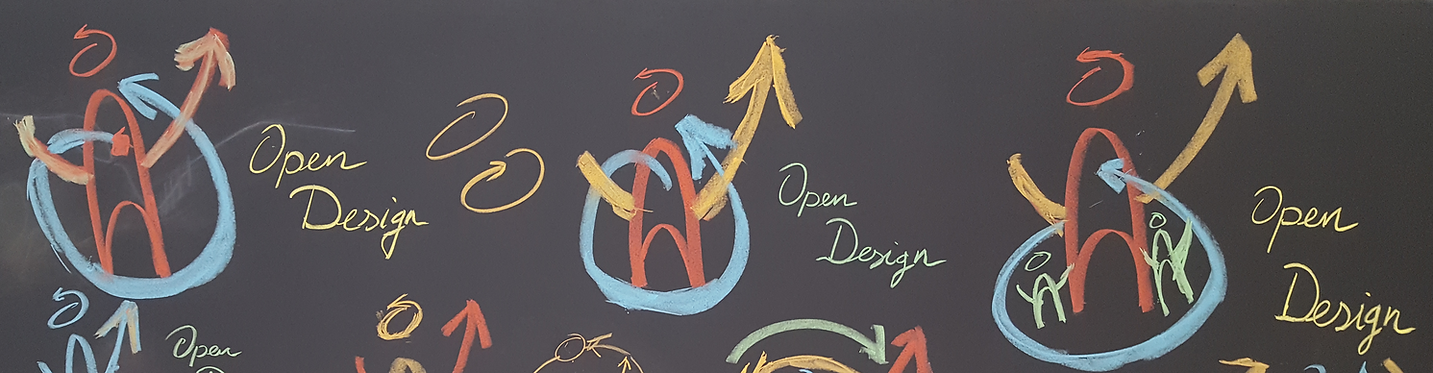 Open
Design
Open
Design
Open
Design
Open